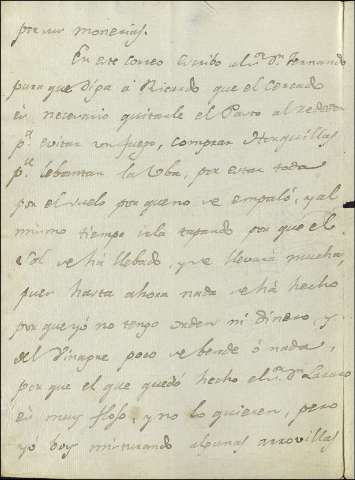 por sus monerias.
En este correo escribo al S.r D.n Fernando
para que diga á Ricardo que el Cercado
es necesario quitarle el Pasto al rededor
p.a evitar un fuego, comprar Horquillas
p.a lebantar la Uba, por estar toda
por el suelo porque no se empaló, y al
mismo tiempo irla tapando por que el
Sol se há llebado, y se llevará mucha,
pues hasta ahora nada se há hecho
por que yó no tengo orden ni dinero, y
del Vinagre poco se bende ó nada,
por que el que quedó hecho el S.r D.n Lazaro
es muy flojo, y no lo quieren, pero
yó boy misturando algunas arrovillas